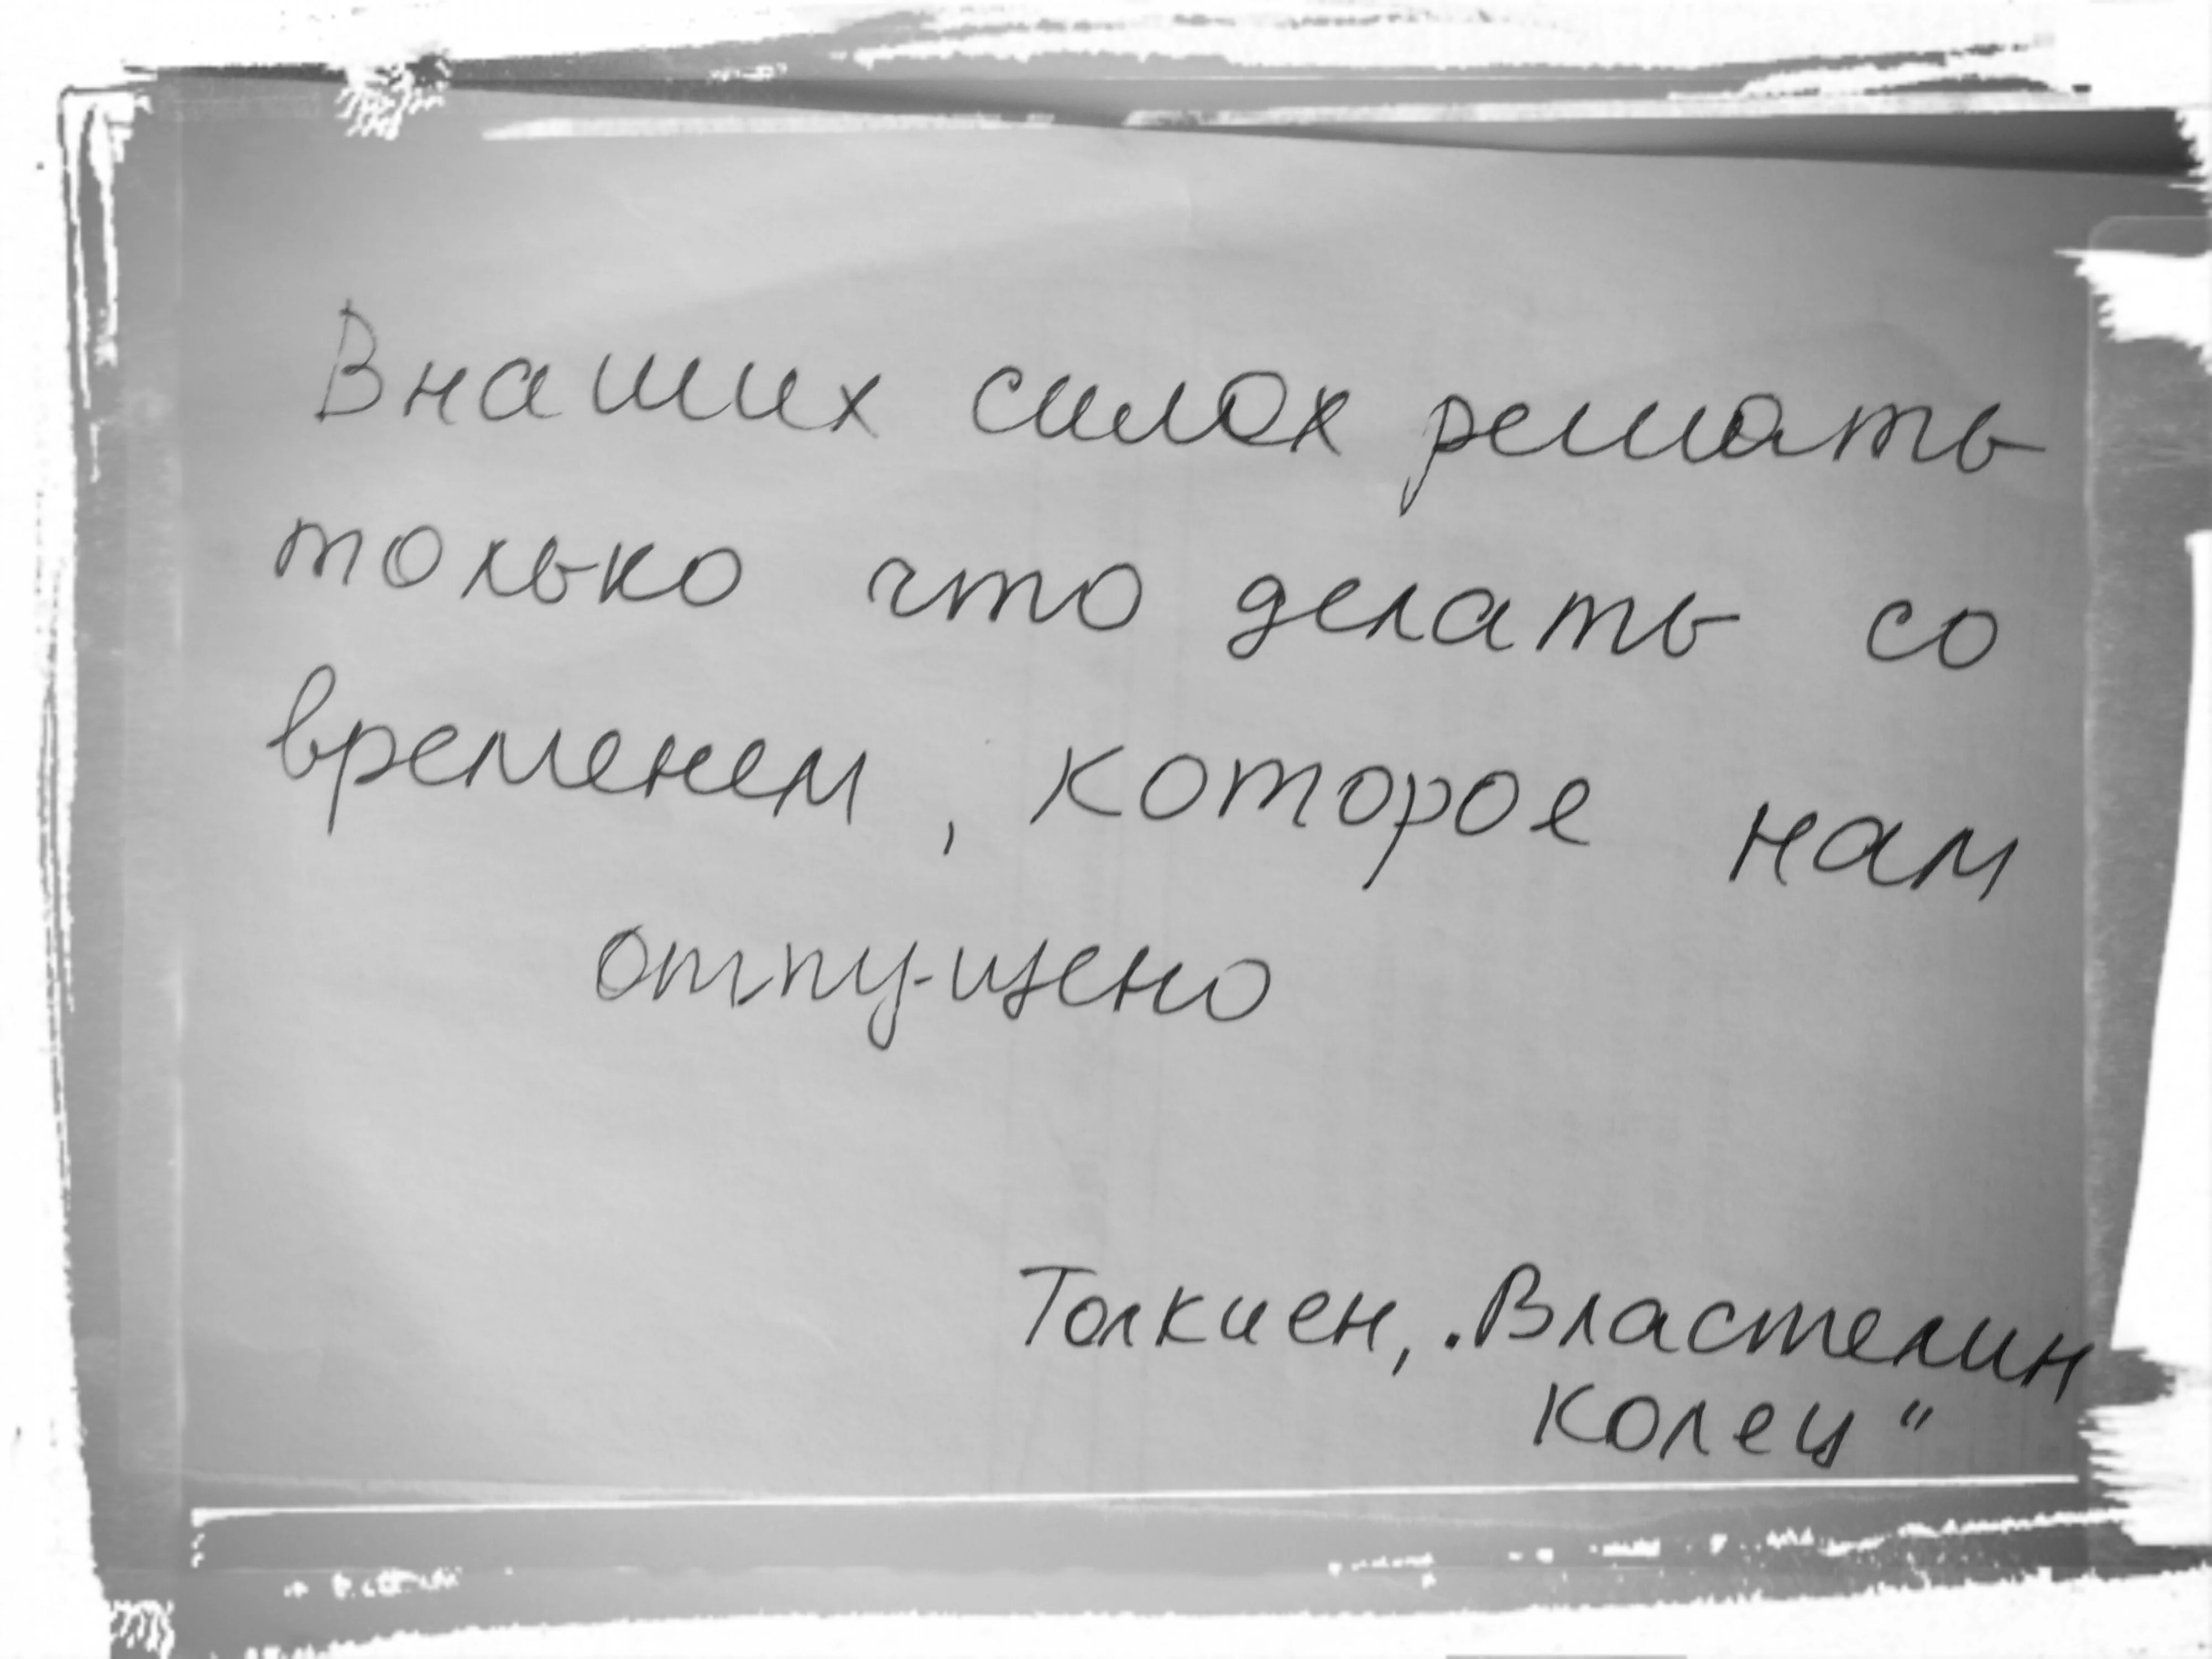 В наших силах решать
только что делать со
временем, которое нам
отпущено
Толкиен, „Властелин
Колец"